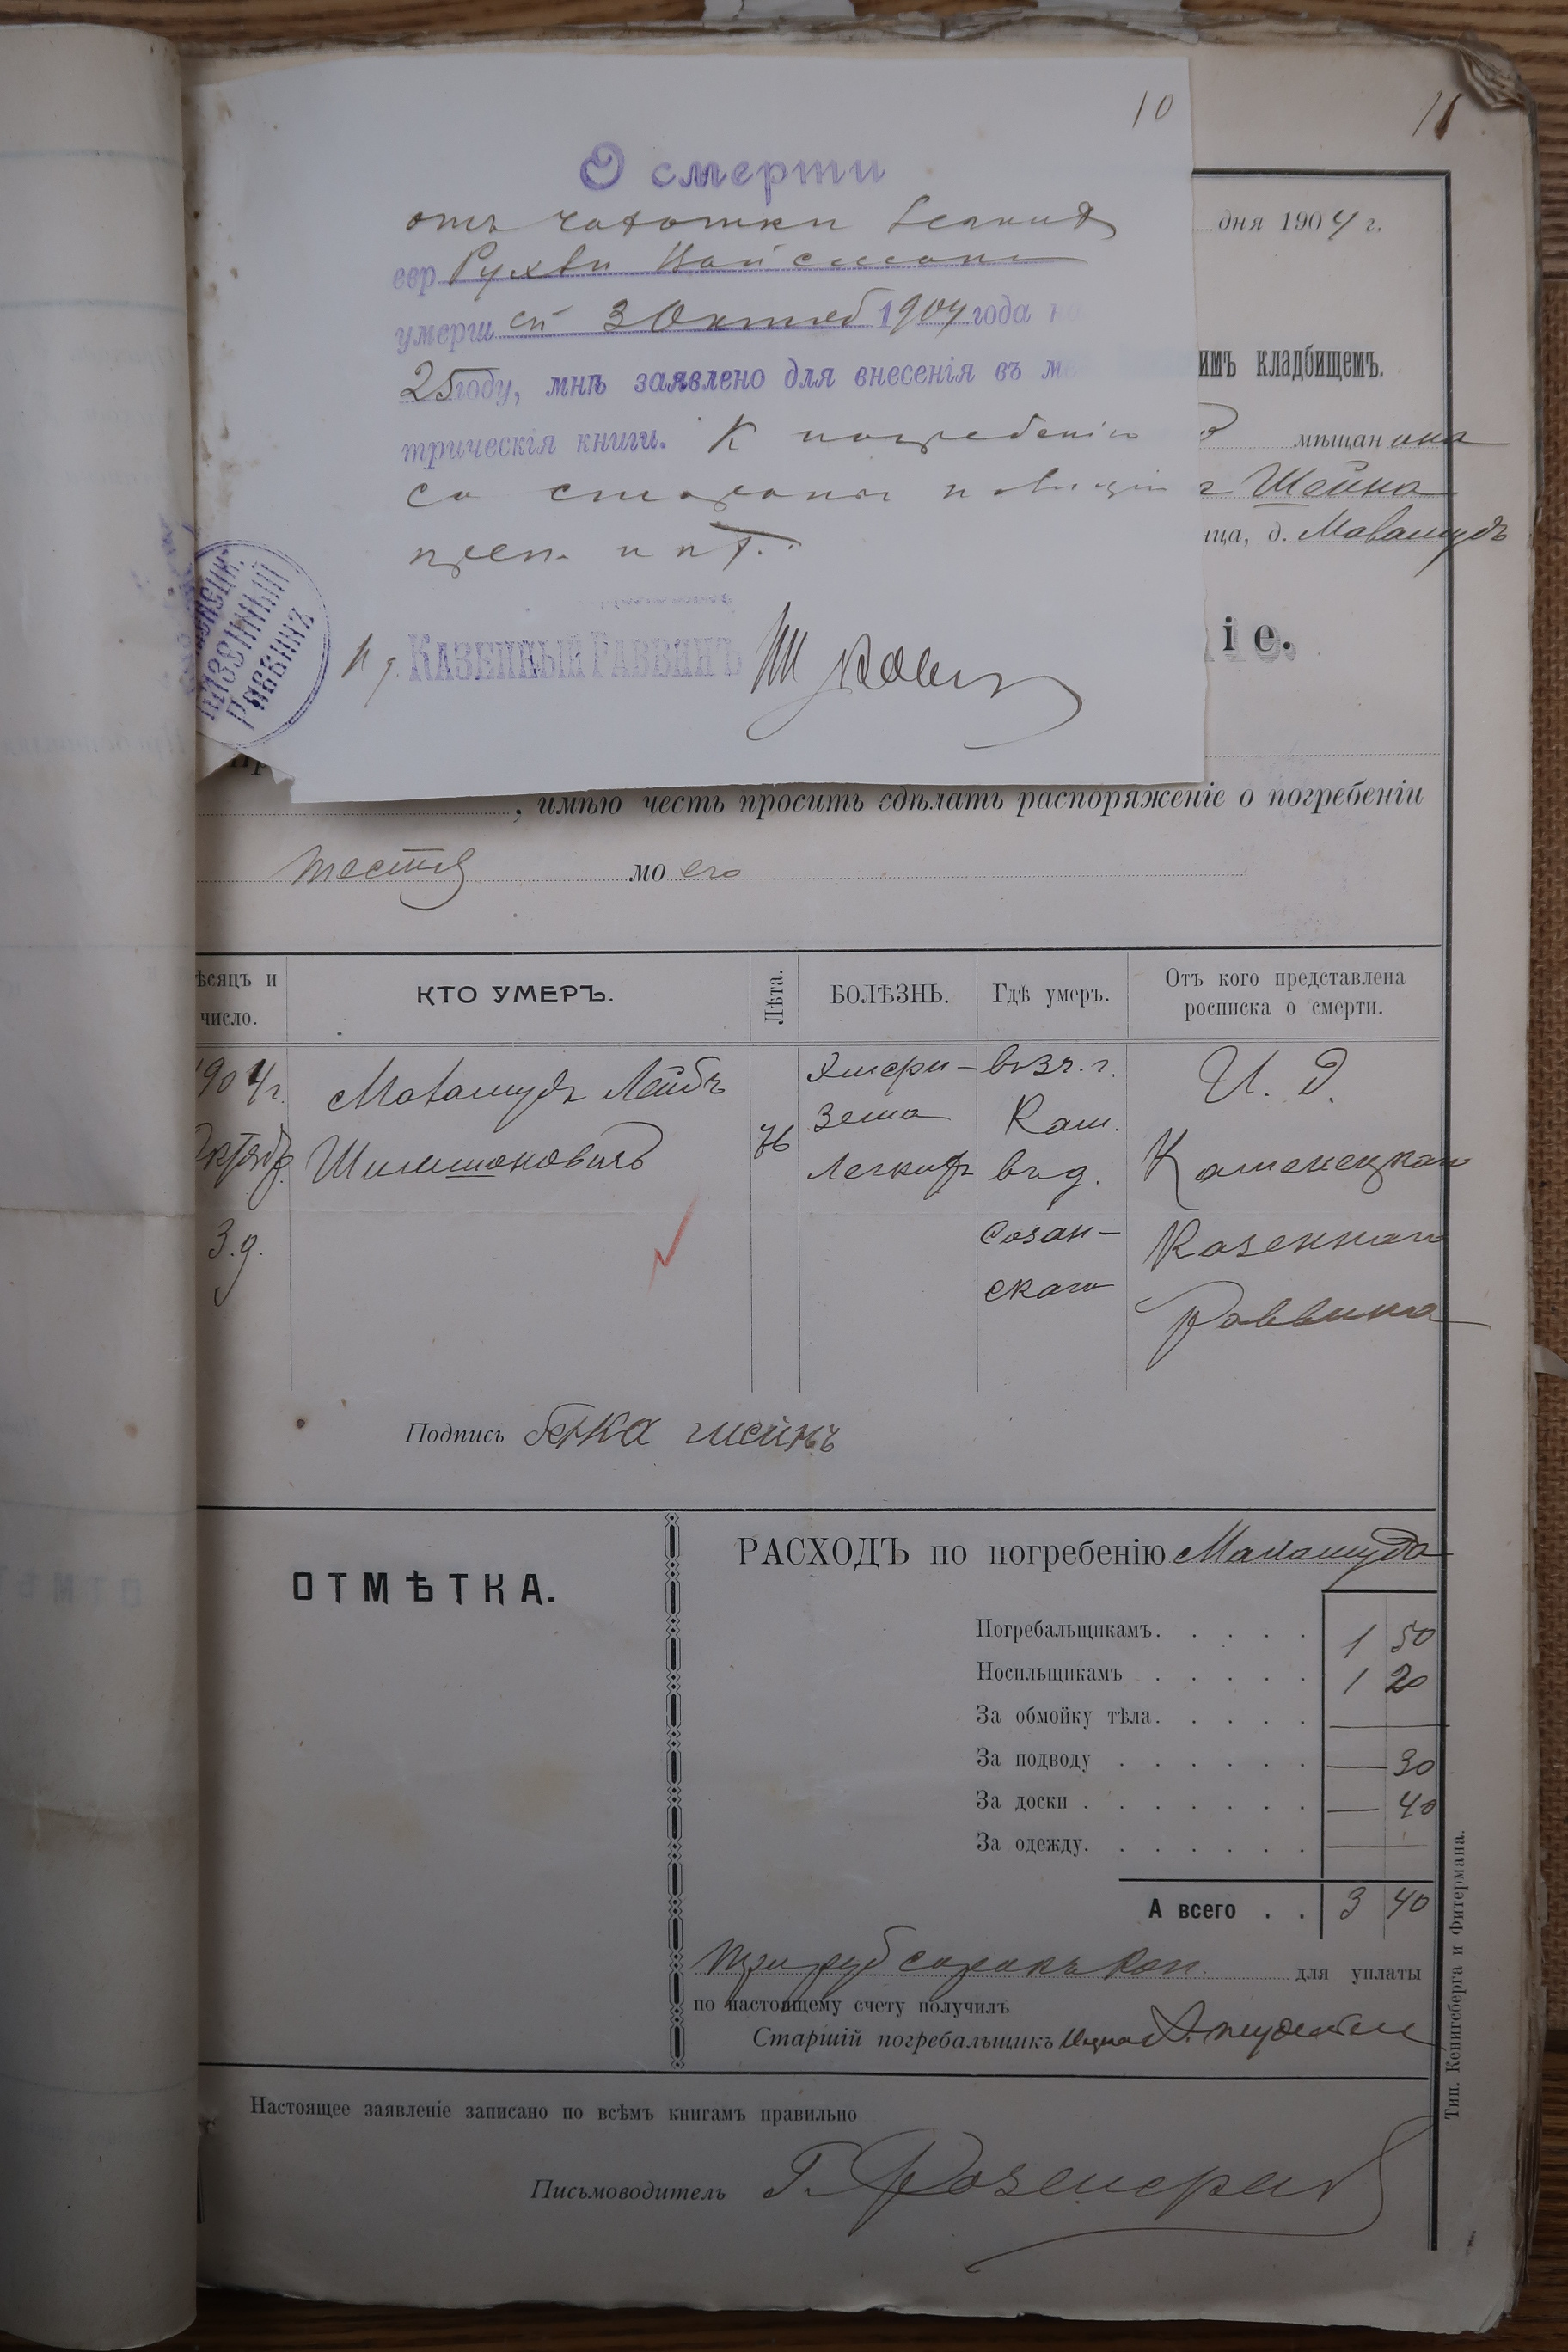 10
11
О смерти
отъ чахотки
евр Рухли Вайсман
умерш ей 3 Октяб 1904 года на
25 году, мнѣ заявлено для внесенія въ ме
трическія книги. К погребенію
со стороны
КАЗЕННЫЙ РАВВИНЪ
КАЗЕННЫЙ
РАВВИНЪ
дня 1904 г.
имъ кладбищемъ.
мѣщан ина
Шейна
ица, д.
іе.
, имѣю честь просить сдѣлать распоряженіе о погребеніи
тестя мо его
ѣсяцъ и число. КТО УМЕРЪ. Лѣта. БОЛѢЗНЬ. Гдѣ умеръ. Отъ кого представлена росписка о смерти.
904 г. Лейбъ Эмфи- И. Д.
Октября Шимоновичъ 76 зема Кам. Каменецкаго
3.д. Легкихъ въ д. Казеннаго
созан- Раввина
скаго
Подпись шейнъ
ОТМѢТКА.
РАСХОДЪ по погребенію
Погребальщикамъ. . . . . 1 50
Носильщикамъ . . . . . 1 20
За обмойку тѣла. . . . . —
За подводу . . . . . . — 30
За доски . . . . . . . — 40
За одежду. . . . . . . —
А всего . . 3 40
Три руб сорокъ коп. для уплаты
по настоящему счету получилъ
Старшій погребальщикъ
Настоящее заявленіе записано по всѣмъ книгамъ правильно
Письмоводитель Г.
Тип. Кенигсберга и Фитермана.